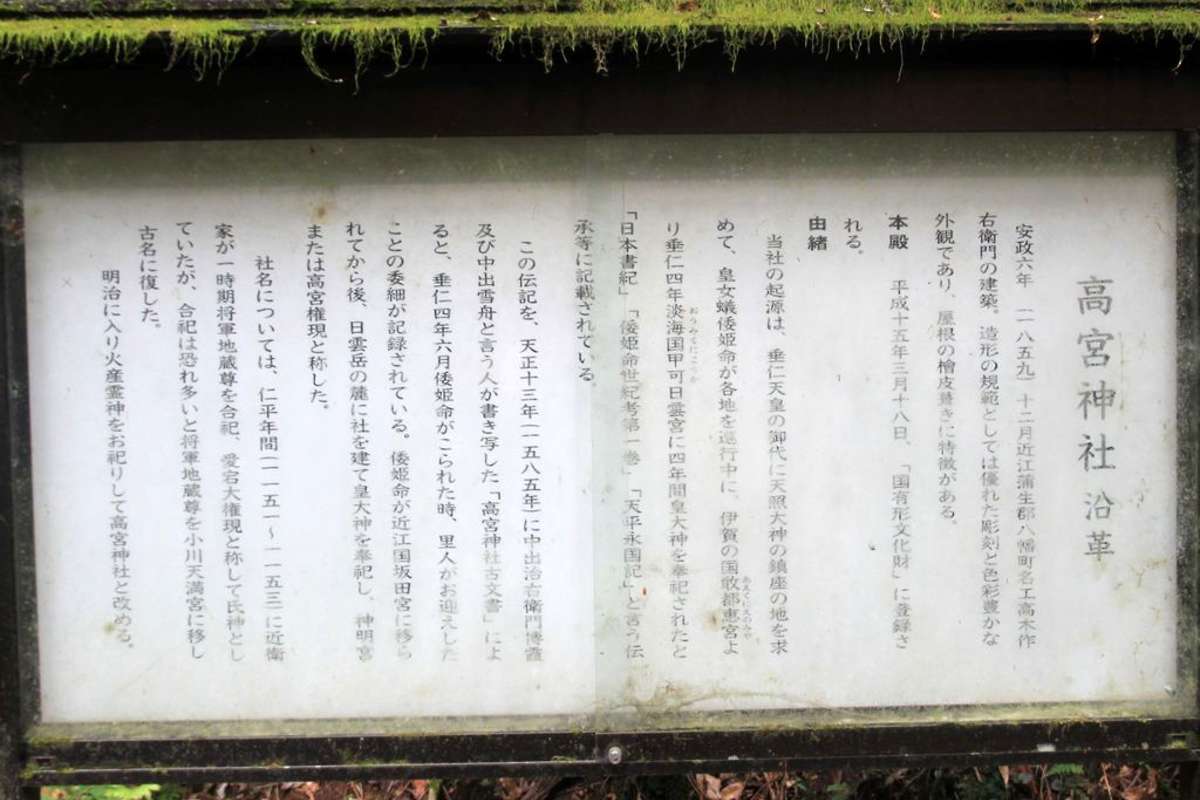 高宮神社 沿革
安政六年(一八五九)十二月近江蒲生郡八幡町名工高木作
右衛門の建築。造形の規範としては優れた彫刻と色彩豊かな
外観であり、屋根の檜皮葺きに特徴がある。
本殿 平成十五年三月十八日、「国有形文化財」に登録さ
れる。
由緒
当社の起源は、垂仁天皇の御代に天照大神の鎮座の地を求
めて、皇女蟻倭姫命が各地を進行中に、伊賀の国敢都恵宮よ
り垂仁四年淡海国甲可日雲宮に四年間皇大神を奉祀されたと
「日本書紀」「倭姫命世紀考第一巻」「天平永国記」と言う伝
承等に記載されている。
この伝記を、天正十三年(一五八五年)に中出治右衛門博
及び中出雪舟と言う人が書き写した「高宮神社古文書」によ
ると、垂仁四年六月倭姫命がこられた時、里人がお迎えした
ことの委細が記録されている。倭姫命が近江国坂田宮に移ら
れてから後、日雲岳の麓に社を建て皇大神を奉祀し、神明宮
または高宮権現と称した。
社名については、仁平年間(一一五一～一一五三)に近衛
家が一時期将軍地蔵尊を合祀、愛宕大権現と称して氏神とし
ていたが、合祀は恐れ多いと将軍地蔵尊を小川天満宮に移し
古名に復した。
明治に入り火産霊神をお祀りして高宮神社と改める。